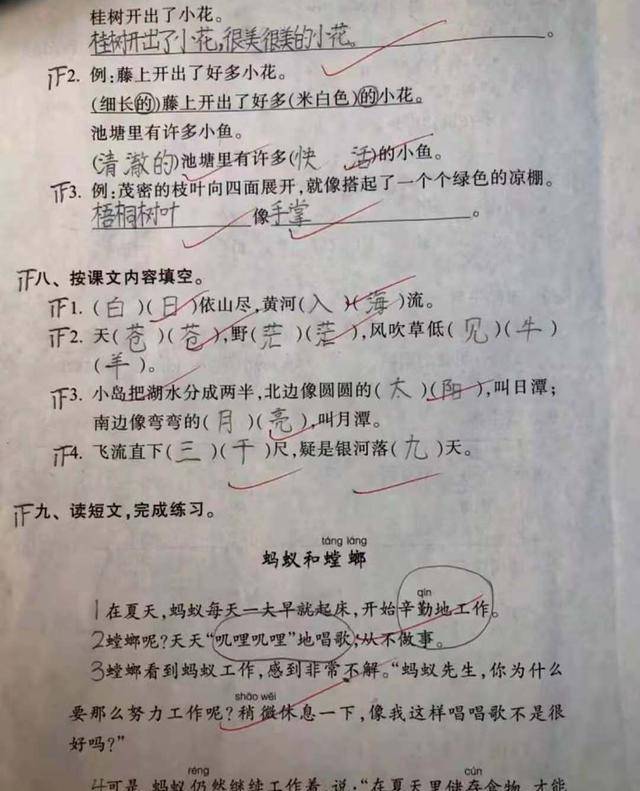 桂树开出了小花。
桂树开出了小花,很美很美的小花。。
正2. 例:藤上开出了好多小花。
(细长的)藤上开出了好多(米白色)的小花。
池塘里有许多小鱼。
(清澈的)池塘里有许多(快 活)的小鱼。
正3. 例:茂密的枝叶向四面展开,就像搭起了一个个绿色的凉棚。
梧桐树叶像手掌。
正八、按课文内容填空。
正1. (白)(日)依山尽,黄河(入)(海)流。
正2. 天(苍)(苍),野(茫)(茫),风吹草低(见)(牛)
(羊)。
正3. 小岛把湖水分成两半,北边像圆圆的(太)(阳),叫日潭;
南边像弯弯的(月)(亮),叫月潭。
正4. 飞流直下(三)(千)尺,疑是银河落(九)天。
正九、读短文,完成练习。
táng láng
蚂蚁和螳螂
qín
1在夏天,蚂蚁每天一大早就起床,开始辛勤地工作。
2螳螂呢?天天“叽哩叽哩”地唱歌,从不做事。
3螳螂看到蚂蚁工作,感到非常不解。“蚂蚁先生,你为什么
shāo wēi
要那么努力工作呢?稍微休息一下,像我这样唱唱歌不是很
好吗?”
réng cún
4可是,蚂蚁仍然继续工作着,说:“在夏天里储存食物,才能